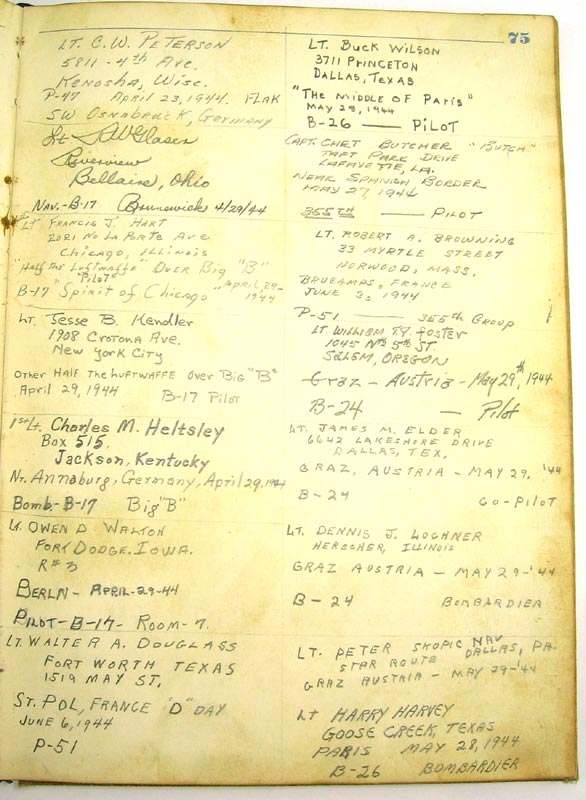 75
LT. C.W. PETERSON
5811 - 4th AVE.
KENOSHA, WISC.
P-47 APRIL 23, 1944. FLAK
SW OSNABRUCK, GERMANY
Lt. Glaser
Riverview
Bellaire, Ohio
NAV.-B-17 Brunswick 4/29/44
LT FRANCIS J. HART
2021 NO LA PORTE AVE
CHICAGO, ILLINOIS
"HALF THE LUFTWAFFE" OVER BIG "B"
"PILOT"
B-17 "SPIRIT OF CHICAGO" APRIL, 29- 1944
LT. Jesse B. Kendler
1908 CROTONA AVE.
NEW YORK CITY
OTHER HALF THE LUFTWAFFE OVER BIG "B"
April 29, 1944 B-17 PILOT
1st Lt. Charles M. Heltsley
Box 515.
Jackson, Kentucky
Nr. Annaburg, Germany, April 29, 1944
Bomb.- B-17 Big "B"
Lt. OWEN D WALTON
FORT DODGE. IOWA.
R#3
BERLN - APRIL-29-44
PILOT-B-17- ROOM-7.
LT. WALTER A. DOUGLASS
FORT WORTH TEXAS
1519 MAY ST,
ST. POL, FRANCE "D" DAY
JUNE 6, 1944
P-51
LT. BUCK WILSON
3711 PRINCETON
DALLAS, TEXAS
"THE MIDDLE OF PARIS"
MAY 28, 1944
B-26 — PILOT
CAPT. CHET BUTCHER "BUTCH"
TAFT PARK DRIVE
LAFAYETTE, LA.
NEAR SPANISH BORDER
MAY 27, 1944
355TH — PILOT
LT. ROBERT A. BROWNING
33 MYRTLE STREET
NORWOOD, MASS.
FRANCE
JUNE 3, 1944
P-51 — 355th GROUP
LT WILLIAM FOSTER
1045 5th ST
SALEM, OREGON
Graz - Austria - May 29th, 1944
B-24 — Pilot
LT. JAMES M. ELDER
6642 LAKESHORE DRIVE
DALLAS, TEX.
GRAZ, AUSTRIA - MAY 29. '44
B-24 CO-PILOT
LT. DENNIS J. LOCHNER
HERSCHER, ILLINOIS
GRAZ AUSTRIA - MAY 29-'44
B-24 BOMBARDIER
LT. PETER SKOPIC NAV
STAR ROUTE DALLAS, PA.
GRAZ AUSTRIA - MAY 29-'44
LT HARRY HARVEY
GOOSE CREEK, TEXAS
PARIS MAY 28, 1944
B-26 BOMBARDIER